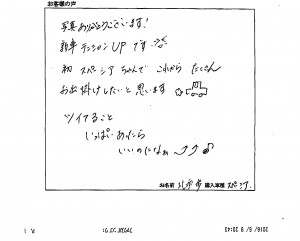 お客様の声
写真ありがとうございます!
新車テンション UP です
初 スペーシア ちゃんで これから たくさん
お出掛けしたいと思います
ツイてること
いっぱいあったら
いいのになぁ ♪
お名前 購入車種 スペーシア